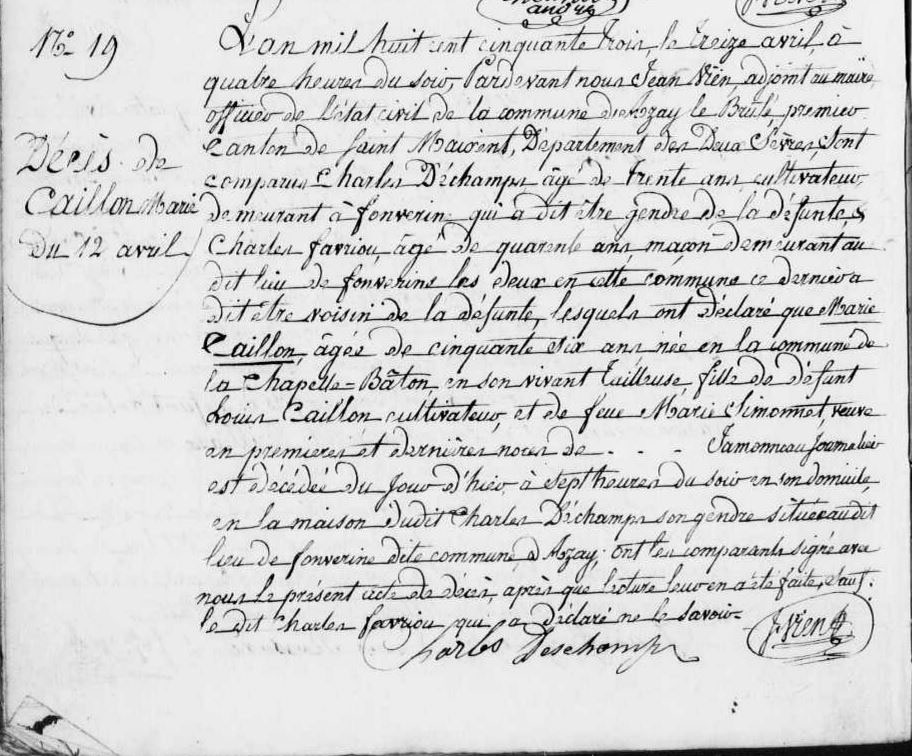 N.° 19
Décès de
Caillon Marie
du 12 avril.
L'an mil huit cent cinquante trois, le treize avril, à
quatre heures du soir, Pardevant nous Jean Vien, adjoint au maire
officier de l'état civil de la commune de Azay le Brûlé, premier
Canton de Saint Maixent, Département des Deux Sèvres, sont
comparus Charles Déchamps, âgé de trente ans cultivateur,
demeurant à fonverin, qui a dit être gendre de la défunte, &
Charles favriou, âgé de quarente ans, maçon demeurant au
dit lieu de fonverins les deux en cette commune ce dernier a
dit être voisin de la défunte, lesquels ont déclaré que Marie
Caillon, âgée de cinquante six ans née en la commune de
la Chapelle-Bâton, en son vivant Tailleuse, fille de défunt
Louis Caillon cultivateur, et de feue Marie Simonnet veuve
en premières et dernières noces de . . . Jamonneau
est décédée du jour d'hier, à sept heures du soir en son domicile,
en la maison dudit Charles Déchamps son gendre située audit
lieu de fonverine dite commune d'Azay; ont les comparants signé avec
nous le présent acte de décès, après que lecture leur en a été faite, sauf
le dit Charles favriou, qui a déclaré ne le savoir
Charles Deschamps
J Vien